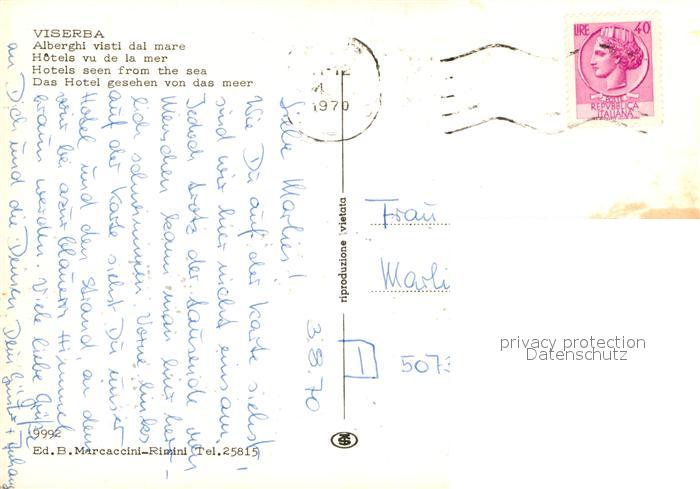 VISERBA
Alberghi visti dal mare
Hôtels vu de la mer
Hotels seen from the sea
Das Hotel gesehen von das meer
4.
1970
LIRE 40
POSTE
REPVBBLICA
ITALIANA
3.8.70
Liebe Marlies!
Wie Du auf der Karte siehst,
sind wir hier nicht einsam.
Jedoch trotz der tausende von
Menschen kann man hier herr-
lich schwimmen. Vorne links
auf der Karte siehst Du unser
Hotel und den Strand, an dem
wir bei azurblauem Himmel
braun werden. Viele liebe Grüße
an Dich und die Deinen, Dein
riproduzione vietata
Frau
Marli
D 5073
privacy protection
Datenschutz
9992
Ed.B.Marcaccini-Rimini Tel.25815